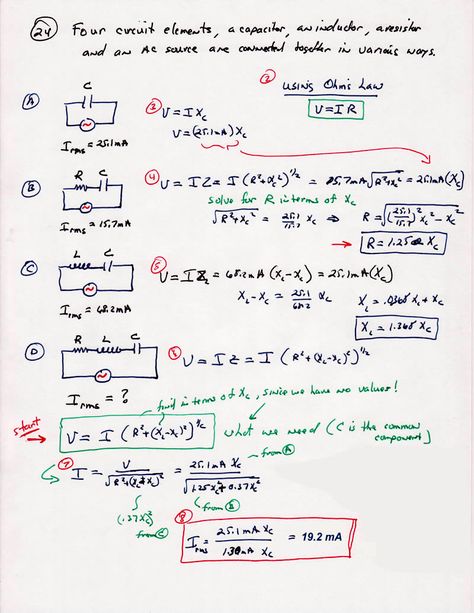 24 Four circuit elements, a capacitor, an inductor, a resistor
and an AC source are connected together in various ways.
2 Using Ohm's Law
V = I R
A
C
I rms = 25.1 mA
3 V = I Xc
V = (25.1 mA) Xc
B
R C
I rms = 15.7 mA
4 V = I Z = I (R² + Xc²)^1/2 = 15.7 mA √R² + Xc² = 25.1 mA (Xc)
solve for R in terms of Xc
√R² + Xc² = 25.1/15.7 Xc ⇒ R = √(25.1/15.7)² Xc² - Xc²
→ R = 1.25 Xc
C
L C
I rms = 68.2 mA
5 V = I Z = 68.2 mA (XL - Xc) = 25.1 mA (Xc)
XL - Xc = 25.1/68.2 Xc XL = .0368 Xc + Xc
XL = 1.368 Xc
D
R L C
I rms = ?
6 V = I Z = I (R² + (XL - Xc)²)^1/2
find in terms of Xc, since we have no values!
start → V = I (R² + (XL - Xc)²)^1/2 what we need (C is the common
component)
7 I = V / √R² + (XL - Xc)² = 25.1 mA Xc / √1.25 Xc² + 0.37 Xc² from A
(.37 Xc²) from B
from C
8 I rms = 25.1 mA Xc / 1.30 mA Xc = 19.2 mA